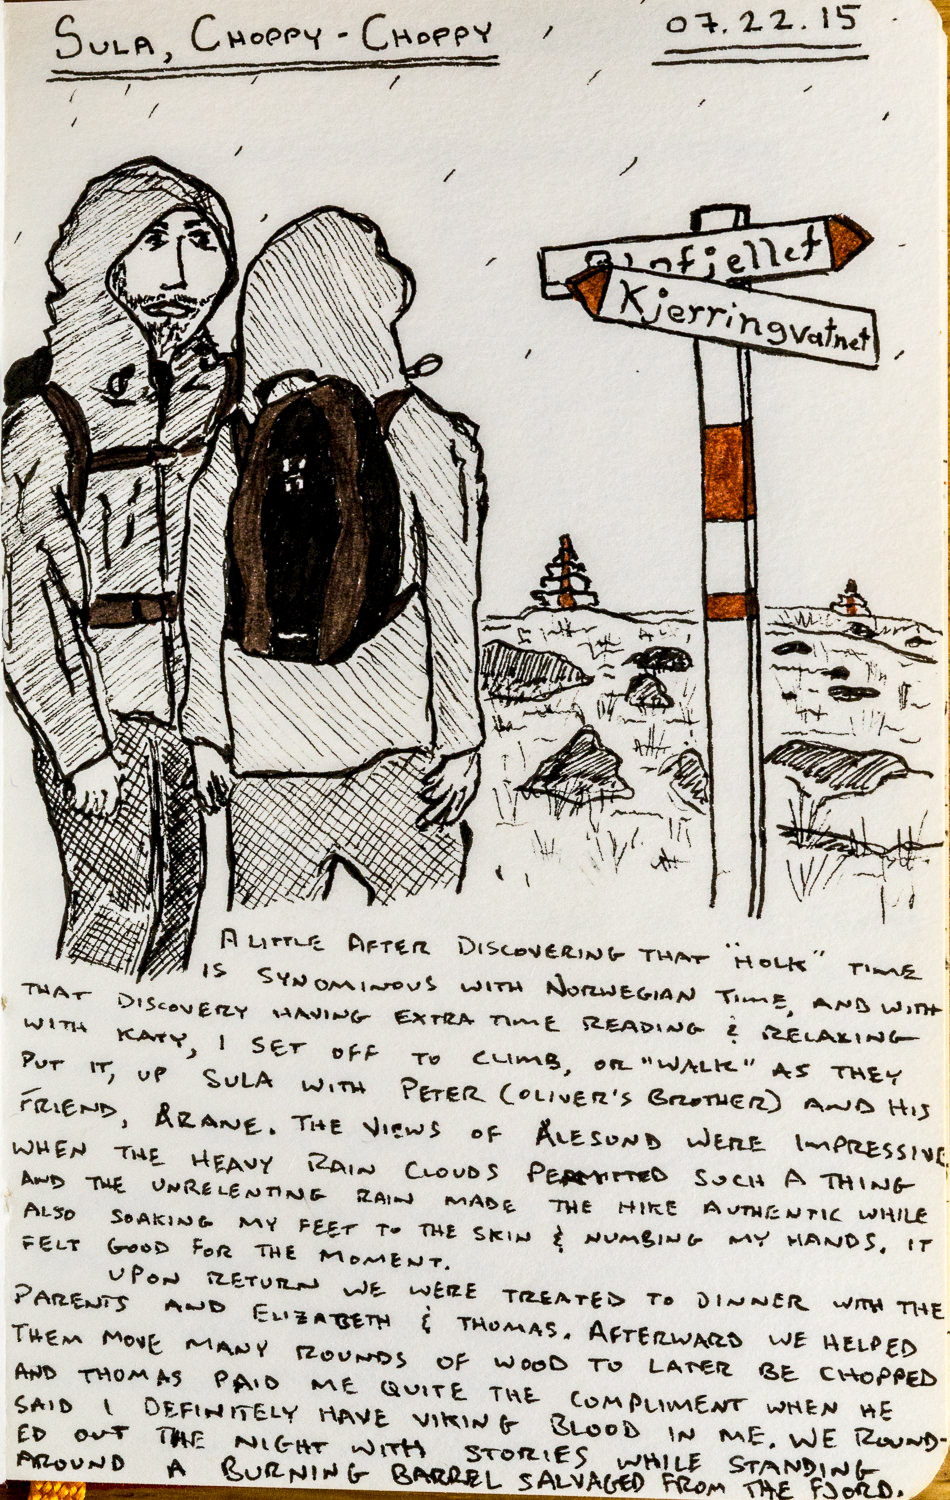 Sula, Choppy-Choppy
07.22.15
fjellet
Kjerringvatnet
A LITTLE AFTER DISCOVERING THAT "HOLK" TIME
IS SYNOMINOUS WITH NORWEGIAN TIME, AND WITH
THAT DISCOVERY HAVING EXTRA TIME READING & RELAXING
WITH KATY, I SET OFF TO CLIMB, OR "WALK" AS THEY
PUT IT, UP SULA WITH PETER (OLIVER'S BROTHER) AND HIS
FRIEND, ARANE. THE VIEWS OF ÅLESUND WERE IMPRESSIVE
WHEN THE HEAVY RAIN CLOUDS PERMITTED SUCH A THING
AND THE UNRELENTING RAIN MADE THE HIKE AUTHENTIC WHILE
ALSO SOAKING MY FEET TO THE SKIN & NUMBING MY HANDS. IT
FELT GOOD FOR THE MOMENT.
UPON RETURN WE WERE TREATED TO DINNER WITH THE
PARENTS AND ELIZABETH & THOMAS. AFTERWARD WE HELPED
THEM MOVE MANY ROUNDS OF WOOD TO LATER BE CHOPPED
AND THOMAS PAID ME QUITE THE COMPLIMENT WHEN HE
SAID I DEFINITELY HAVE VIKING BLOOD IN ME. WE ROUND-
ED OUT THE NIGHT WITH STORIES WHILE STANDING
AROUND A BURNING BARREL SALVAGED FROM THE FJORD.